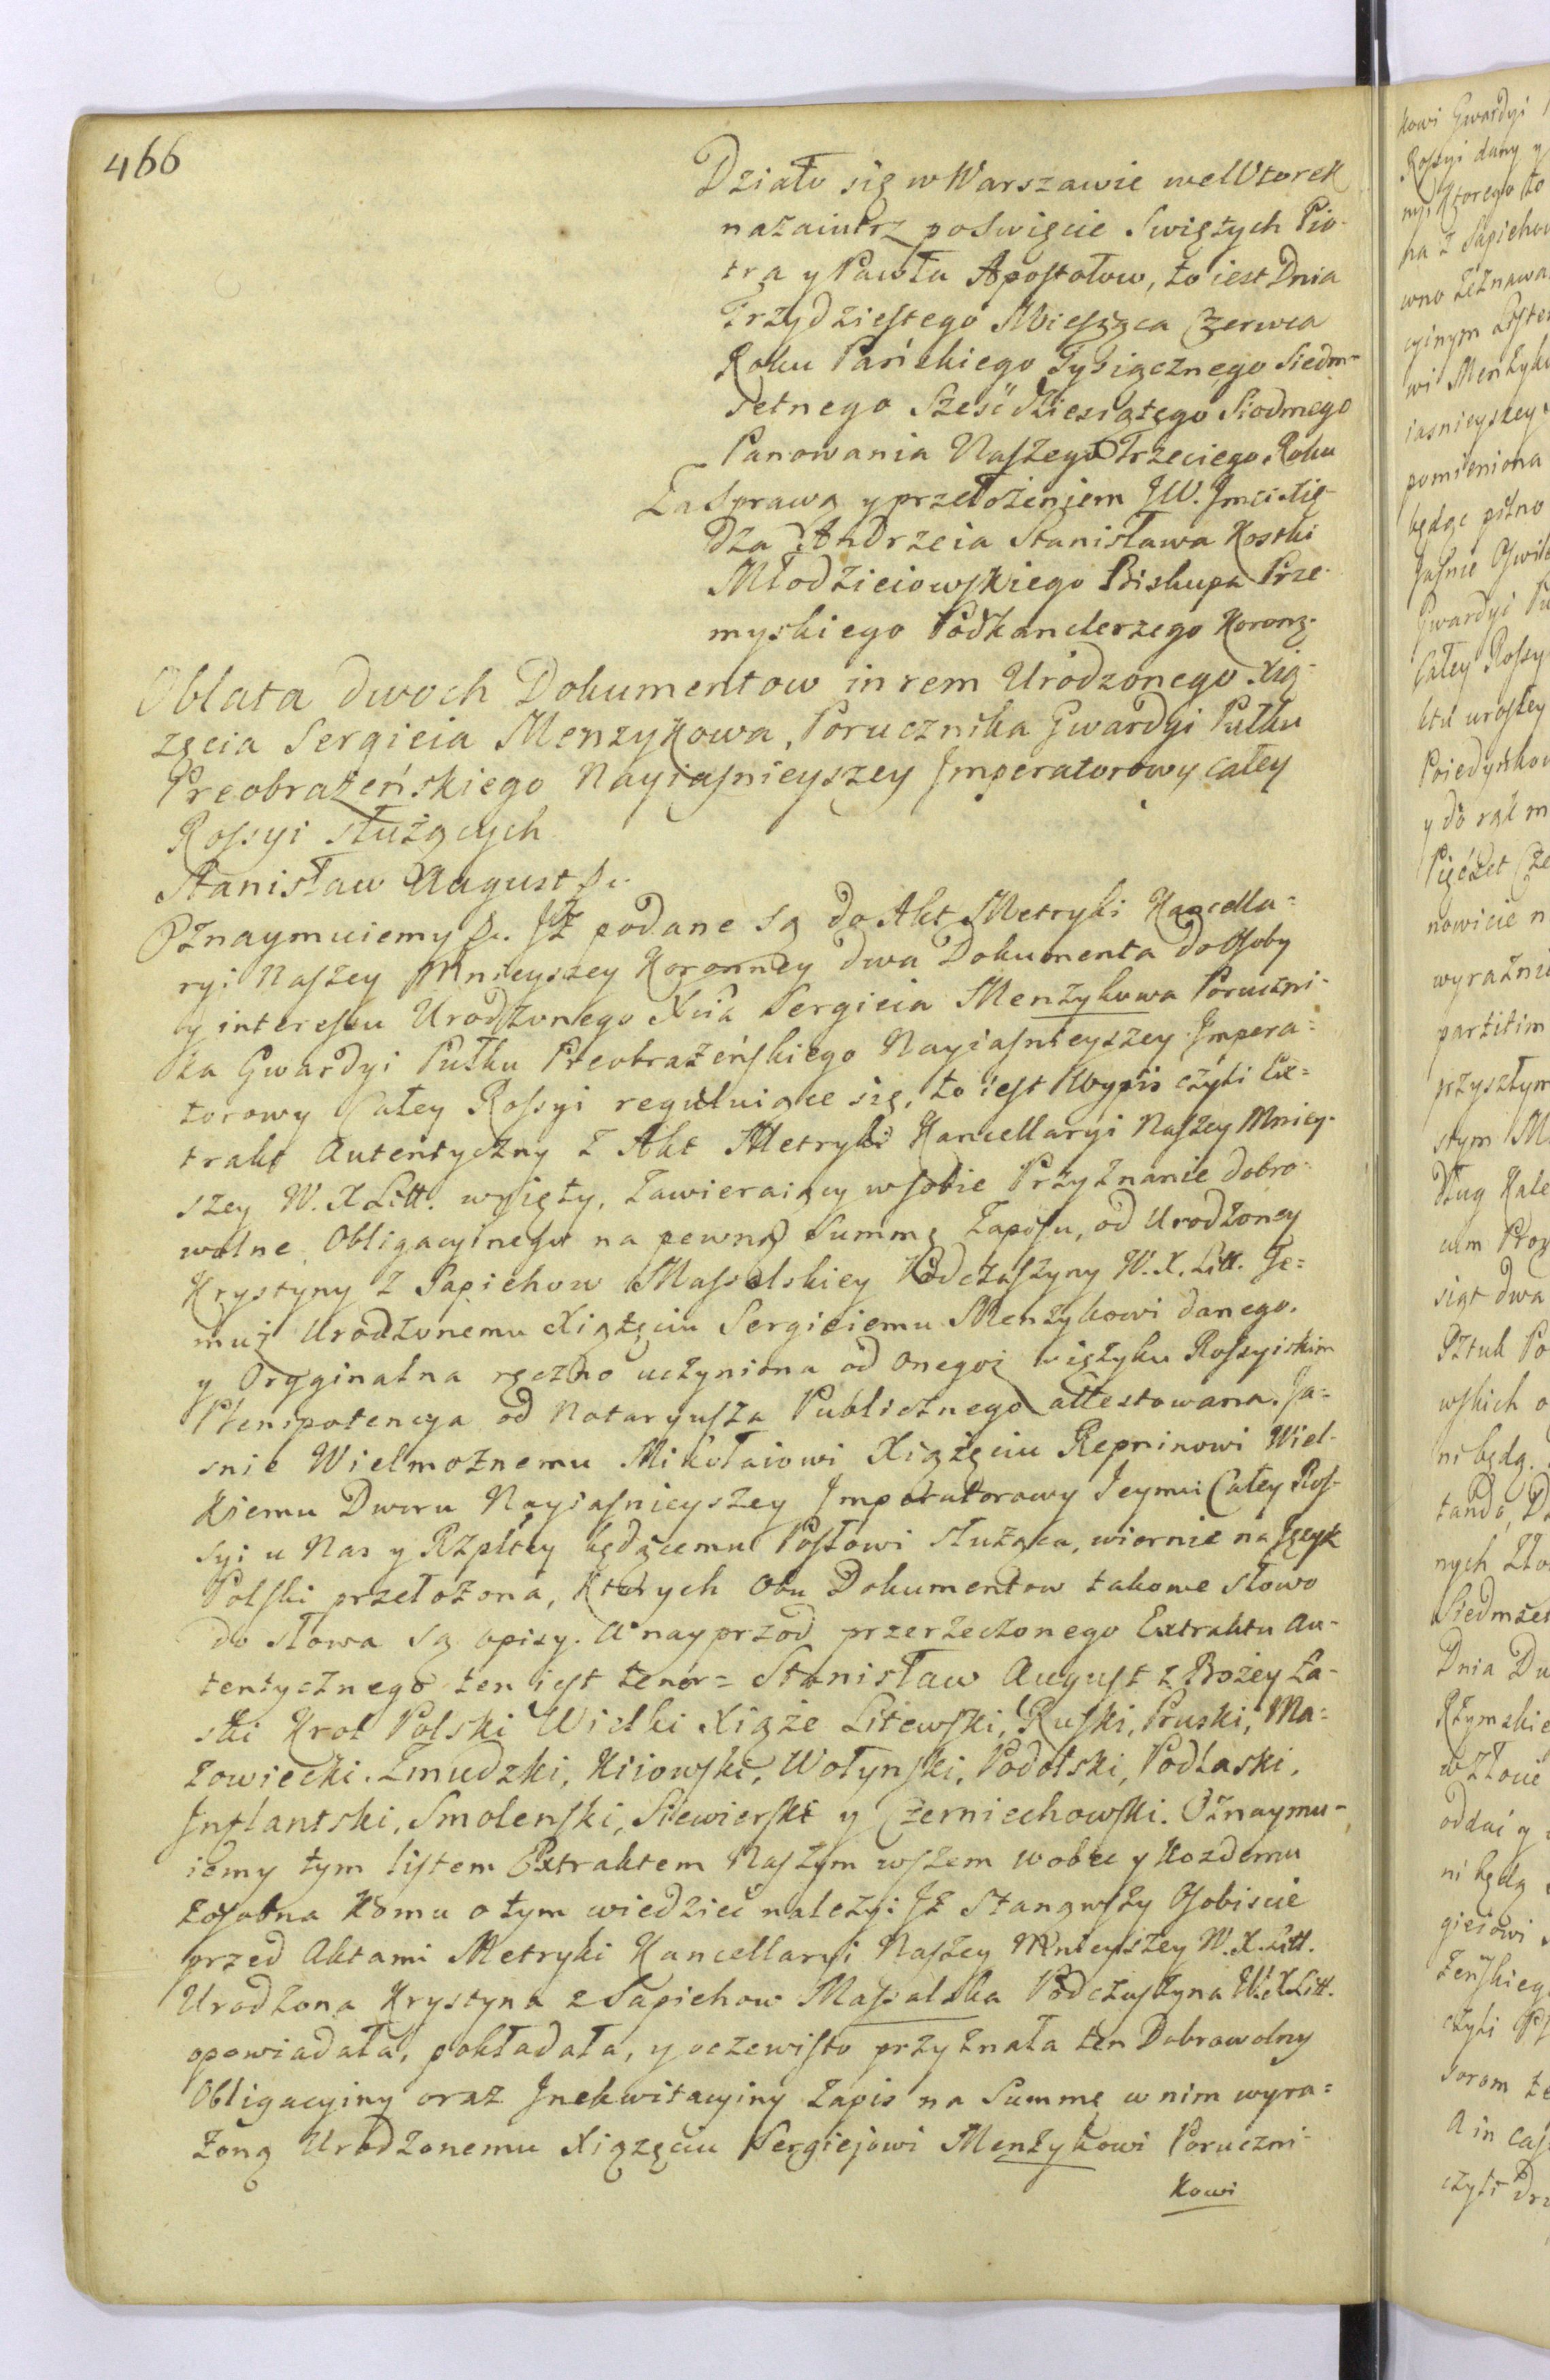 466
Działo się w Warszawie we Wtorek
nazaiutrz po święcie Swiętych Pio-
tra y Pawła Apostołow, to iest Dnia
Trzydziestego Miesiąca Czerwca
Roku Pańskiego Tysiącznego Siedm=
setnego Sześćdziesiątego Siodmego
Panowania Naszego Trzeciego Roku
Za Sprawą y przełożeniem JW. Jmci Xię-
dza Andrzeia Stanisława Kostki
Młodzieiowskiego Biskupa Prze-
myskiego Podkanclerzego Koronę.
Oblata dwoch Dokumentow in rem Urodzonego Xią-
zęcia Sergieia Menzykowa, Porucznika Gwardyi Pułku
Preobrażeńskiego Nayiasnieyszey Jmperatorowy całey
Rossyi służących
Stanisław August &c.
Oznaymuiemy &c. Jż podane są do Akt Metryki Kancella=
ryi Naszey Mnieyszey Koronney dwa Dokumenta do Osoby
y interessu Urodzonego Xcia Sergieia Menżykowa Poruczni-
ka Gwardyi Pułku Preobrażeńskiego Nayiasnieyszey Jmpera=
torowy Całey Rossyi reguluiące się, to iest Wypis czyli Ex=
trakt Autentyczny z Akt Metryki Kancellaryi Naszey Mniey-
szey W. X Litt. wyięty, zawieraiący w sobie Przyznanie dobro=
wolne Obligacyinego na pewną Summę Zapisu, od Urodzoney
Krystyny z Sapiehow Massalskiey Podczaszyny W. X. Litt. Te=
muż Urodzonemu Xiążęciu Sergieiemu Menżykowi danego.
y Oryginalna ręczno uczyniona od onegoż w ięzyku Rossyiskim
Plenipotencya od Notaryusza Publicznego attestowana. Ja=
snie Wielmożnemu Mikołaiowi Xiążęciu Repninowi Wiel-
kiemu Dworu Nayiasnieyszey Jmperatorowy Jeymci Całey Ros-
syi u Nas y Rzpltey będącemu Posłowi służąca, wiernie na Język
Polski przełożona, Ktorych Obu Dokumentow takowe słowo
do słowa są opisy. A nayprzod przerzeczonego Extraktu Au-
tentycznego ten iest tenor= Stanisław August z Bożey Ła-
ski Krol Polski Wielki Xiąże Litewski, Ruski, Pruski, Ma=
zowiecki. Zmudzki, Kiiowski, Wołynski, Podolski, Podlaski,
Jnflantski, Smolenski, Siewierski y Czerniechowski. Oznaymu-
iemy tym listem Extraktem Naszym wszem wobec y Kozdemu
zosobna Komu o tym wiedzieć należy: Jż Stanąwszy Osobiscie
przed Aktami Metryki Kancellaryi Naszey Mnieyszey W. X. Litt.
Urodzona Krystyna z Sapiehow Massalska Podczaszyna W. X Litt.
opowiadała, pokładała, y oczewisto przyznała ten Dobrowolny
Obligacyiny oraz Jnekwitacyiny Zapis na Summę w nim wyra=
żoną Urodzonemu Xiązęciu Sergiejowi Menżykowi Poruczni-
kowi
kowi Gwardyi
Rossyi dany y
ny, Ktorego to
na z Sapiehow
wno zeznawa
cyinym
wi Menżyk
iasnieyszey
pomieniona
będąc pilno
Jasnie Oswie
Gwardyi Pu
Całey Rossy
Poiedyńkow
y do rąk m
nowicie n
wyraźnie
partitim
przyszłym
stym M
dług Kale
siąt dwa
Sztuk Po
wskich o
ni będą.
tando, D
nych Zło
Siedmset
Dnia Du
Rzymskie
w złocie
oddać y
ni będą
gieiowi
żeńskieg
czyli
A in cas
czyli